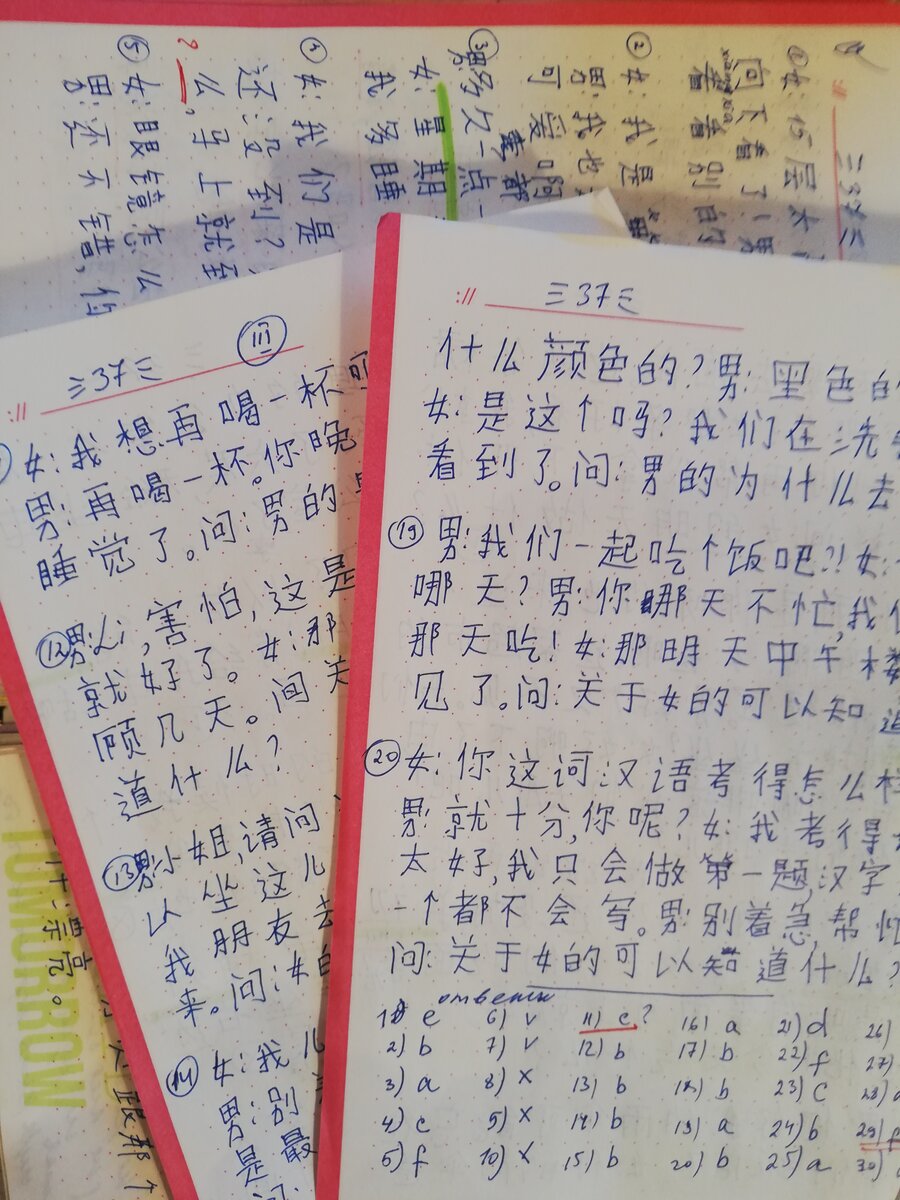 三37三
什么颜色的?男:黑色的
女:是这个吗?我们在洗手
看到了。问:男的为什么去
19 男:我们一起吃个饭吧?!女:
哪天?男:你哪天不忙,我们
那天吃!女:那明天中午楼
见了。问:关于女的可以知道
20 女:你这词汉语考得怎么样
男:就十分,你呢?女:我考得
太好,我只会做第一题,汉字
一个都不会写。男:别着急,帮忙
问:关于女的可以知道什么?
ответы
1) e 6) v 11) c? 16) a 21) d 26)
2) b 7) v 12) b 17) b 22) f 27)
3) a 8) x 13) b 18) b 23) c 28)
4) c 9) x 14) b 19) a 24) b 29) f
5) f 10) x 15) b 20) b 25) a 30)
三37三 III
女:我想再喝一杯
男:再喝一杯。你晚
睡觉了。问:男的
12 男:心,害怕,这是
就好了。女:那
顾几天。问关
道什么?
13 男:小姐,请问
以坐这儿
我朋友去
来。问:女的
14 女:我儿
男:别
是最
三37三
① 女:15层太
向下看了!男
xiang xia
着看别的
② 女:我是
男:我也
可爱啊
③ 男:多久一点
女:星期
我多睡
④ 女:我们是
还没到?
么,马上就到
?
⑤ 女:眼镜怎么
男:还不错,但
TOMORROW